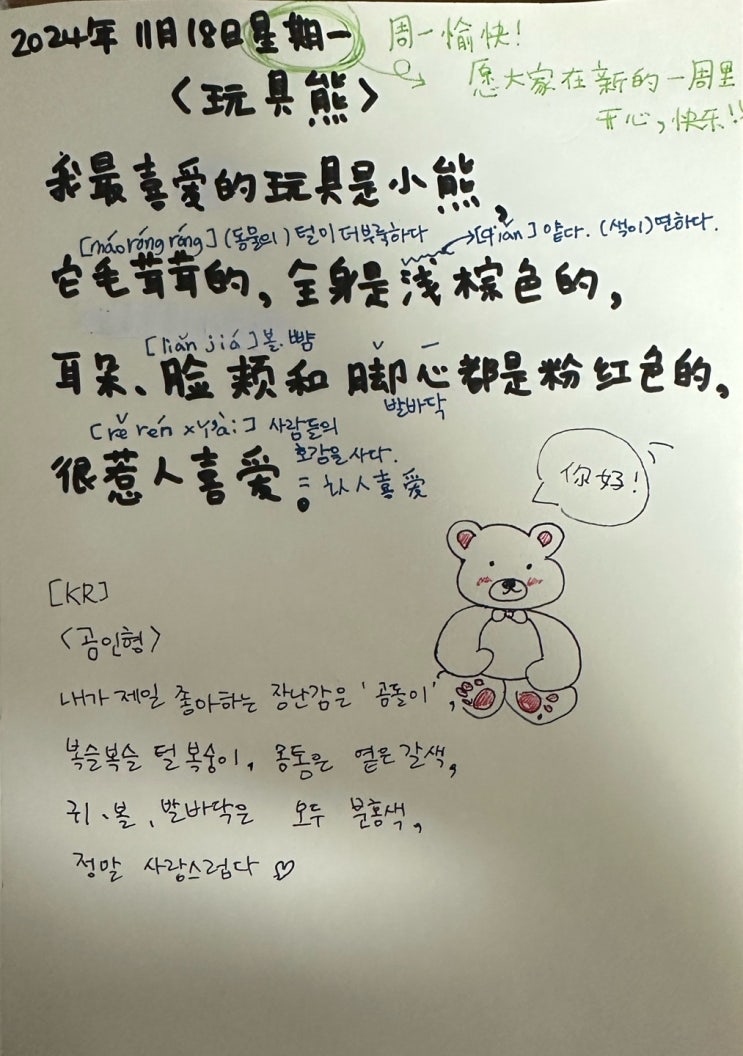 2024年 11月 18日 星期一
周一愉快!
愿大家在新的一周里
开心,快乐!!
<玩具熊>
我最喜爱的玩具是小熊,
[máoróngróng] (동물의) 털이 더부룩하다
[qiǎn] 얕다. (색이) 연하다.
它毛茸茸的, 全身是浅棕色的,
[liǎn jiá] 볼. 뺨
耳朵、脸颊和脚心都是粉红色的,
발바닥
[rě rén xǐ'ài:] 사람들의
호감을 사다.
很惹人喜爱。
= 讨人喜爱
你好!
[KR]
<곰인형>
내가 제일 좋아하는 장난감은 '곰돌이',
복슬복슬 털복숭이, 몽통은 옅은 갈색,
귀、볼、발바닥은 모두 분홍색,
정말 사랑스럽다 ♡